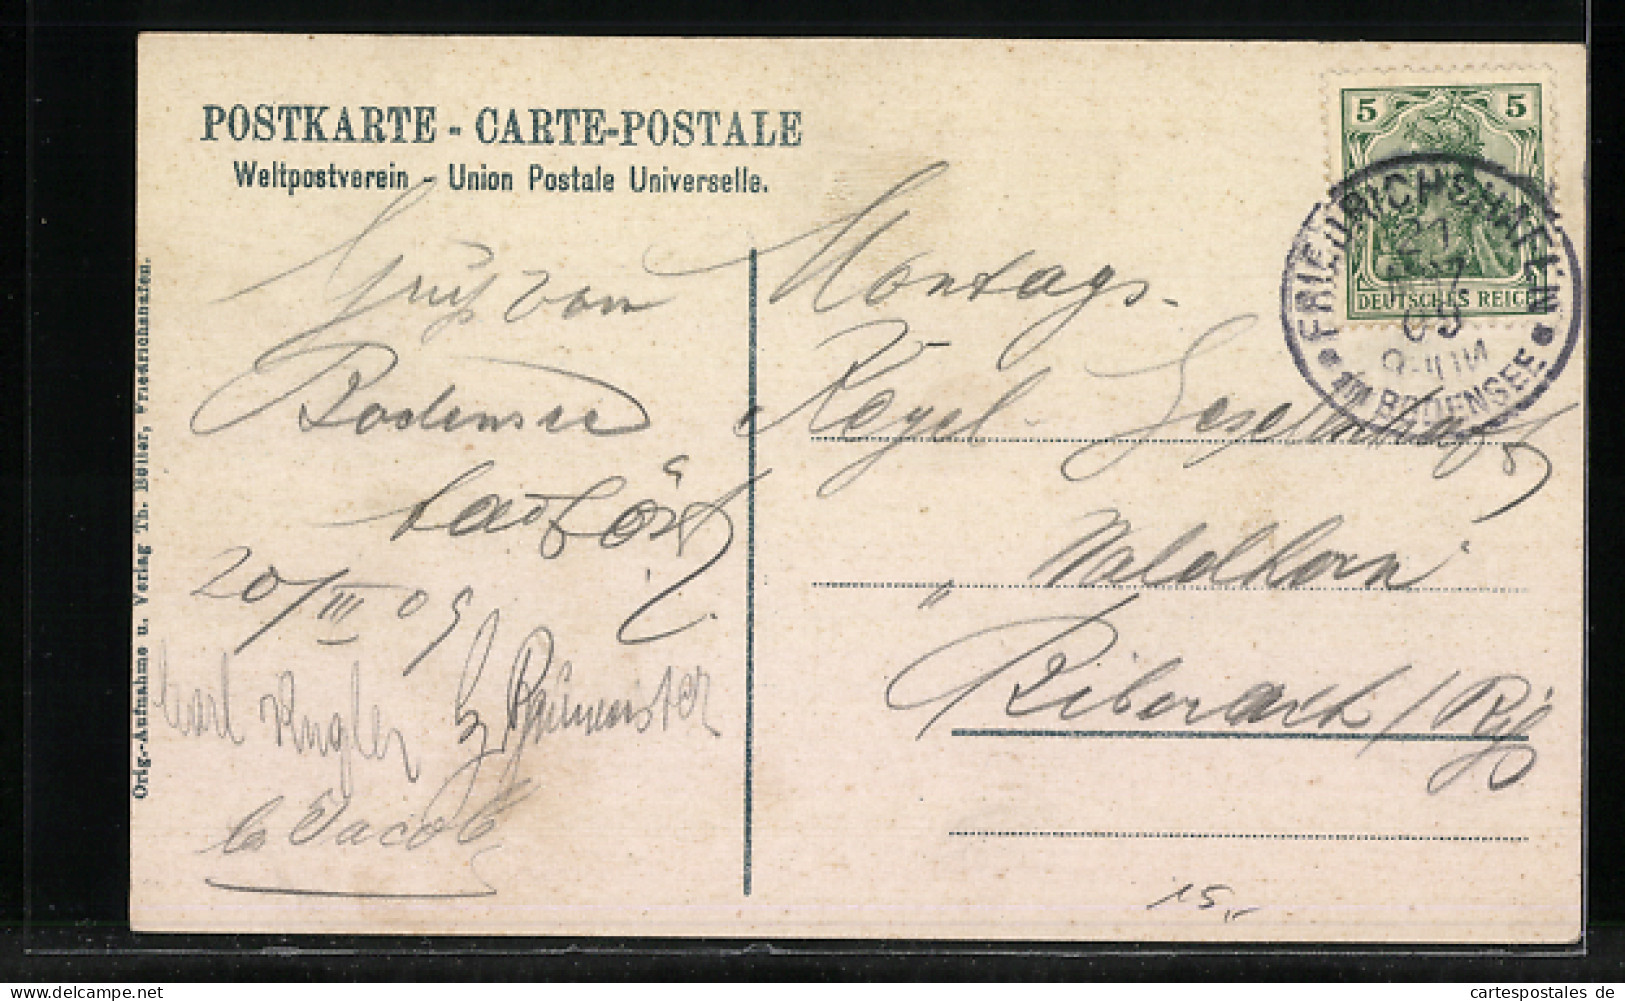 POSTKARTE - CARTE-POSTALE
Weltpostverein - Union Postale Universelle.
Orig.-Aufnahme u. Verlag Th. Büller, Friedrichshafen.
5 5
DEUTSCHES REICH
FRIEDRICHSHAFEN
21
09
IM BODENSEE
Gruß vom
Bodensee
20/III 09
Karl Kugler
Jacob
Montags-
Kegel-Gesellschaft
„Waldhorn“
Biberach/Riß
15,-
cartespostales de